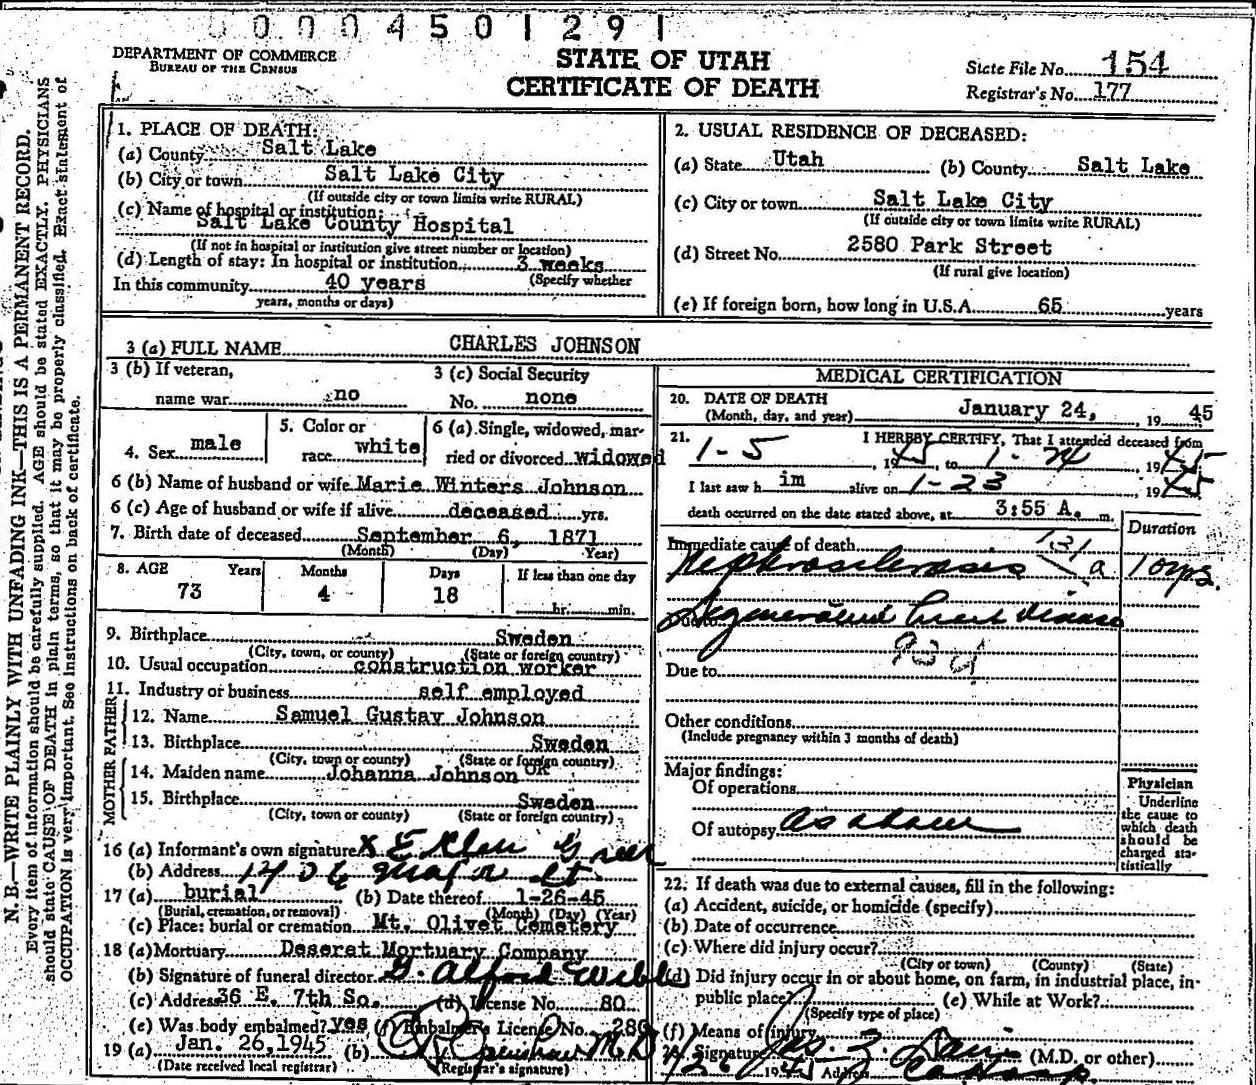 0004501291
DEPARTMENT OF COMMERCE
BUREAU OF THE CENSUS
STATE OF UTAH
CERTIFICATE OF DEATH
State File No. 154
Registrar's No. 177
N. B.—WRITE PLAINLY WITH UNFADING INK—THIS IS A PERMANENT RECORD.
Every item of information should be carefully supplied. AGE should be stated EXACTLY. PHYSICIANS
should state CAUSE OF DEATH in plain terms, so that it may be properly classified. Exact statement of
OCCUPATION is very important. See instructions on back of certificate.
1. PLACE OF DEATH:
(a) County Salt Lake
(b) City or town Salt Lake City
(If outside city or town limits write RURAL)
(c) Name of hospital or institution:
Salt Lake County Hospital
(If not in hospital or institution give street number or location)
(d) Length of stay: In hospital or institution 3 weeks
(Specify whether
In this community 40 years
years, months or days)
2. USUAL RESIDENCE OF DECEASED:
(a) State Utah (b) County Salt Lake
(c) City or town Salt Lake City
(If outside city or town limits write RURAL)
(d) Street No. 2580 Park Street
(If rural give location)
(e) If foreign born, how long in U.S.A. 65 years
3 (a) FULL NAME CHARLES JOHNSON
3 (b) If veteran, name war no
3 (c) Social Security No. none
4. Sex male
5. Color or race white
6 (a) Single, widowed, married or divorced widowed
6 (b) Name of husband or wife Marie Winters Johnson
6 (c) Age of husband or wife if alive deceased yrs.
7. Birth date of deceased September 6, 1871
(Month) (Day) Year)
8. AGE Years Months Days If less than one day
73 4 18 hr. min.
9. Birthplace Sweden
(City, town, or county) (State or foreign country)
10. Usual occupation construction worker
11. Industry or business self employed
FATHER
12. Name Samuel Gustav Johnson
13. Birthplace Sweden
(City, town or county) (State or foreign country)
MOTHER
14. Maiden name Johanna Johnson OK
15. Birthplace Sweden
(City, town or county) (State or foreign country)
16 (a) Informant's own signature X
(b) Address
17 (a) burial (b) Date thereof 1-26-45
(Burial, cremation, or removal) (Month) (Day) (Year)
(c) Place: burial or cremation Mt. Olivet Cemetery
18 (a) Mortuary Deseret Mortuary Company
(b) Signature of funeral director
(c) Address 36 E. 7th So. (d) License No. 80
(e) Was body embalmed? yes (f) Embalmer's License No. 280
19 (a) Jan. 26, 1945 (b) M.D.
(Date received local registrar) (Registrar's signature)
MEDICAL CERTIFICATION
20. DATE OF DEATH
(Month, day, and year) January 24, 19 45
21. I HEREBY CERTIFY, That I attended deceased from
1-5, 19 45, to 1-24, 19 45
I last saw h im alive on 1-23, 19 45
death occurred on the date stated above, at 3:55 A. m.
Duration
Immediate cause of death 131 a
Nephrosclerosis 10 yrs.
Due to Degenerative heart disease
93d
Due to
Other conditions
(Include pregnancy within 3 months of death)
Major findings:
Of operations
Of autopsy as above
Physician
Underline
the cause to
which death
should be
charged sta-
tistically
22. If death was due to external causes, fill in the following:
(a) Accident, suicide, or homicide (specify)
(b) Date of occurrence
(c) Where did injury occur?
(City or town) (County) (State)
(d) Did injury occur in or about home, on farm, in industrial place, in
public place? (e) While at Work?
(Specify type of place)
(f) Means of injury
Signature (M.D. or other)
1/26 1945 Address